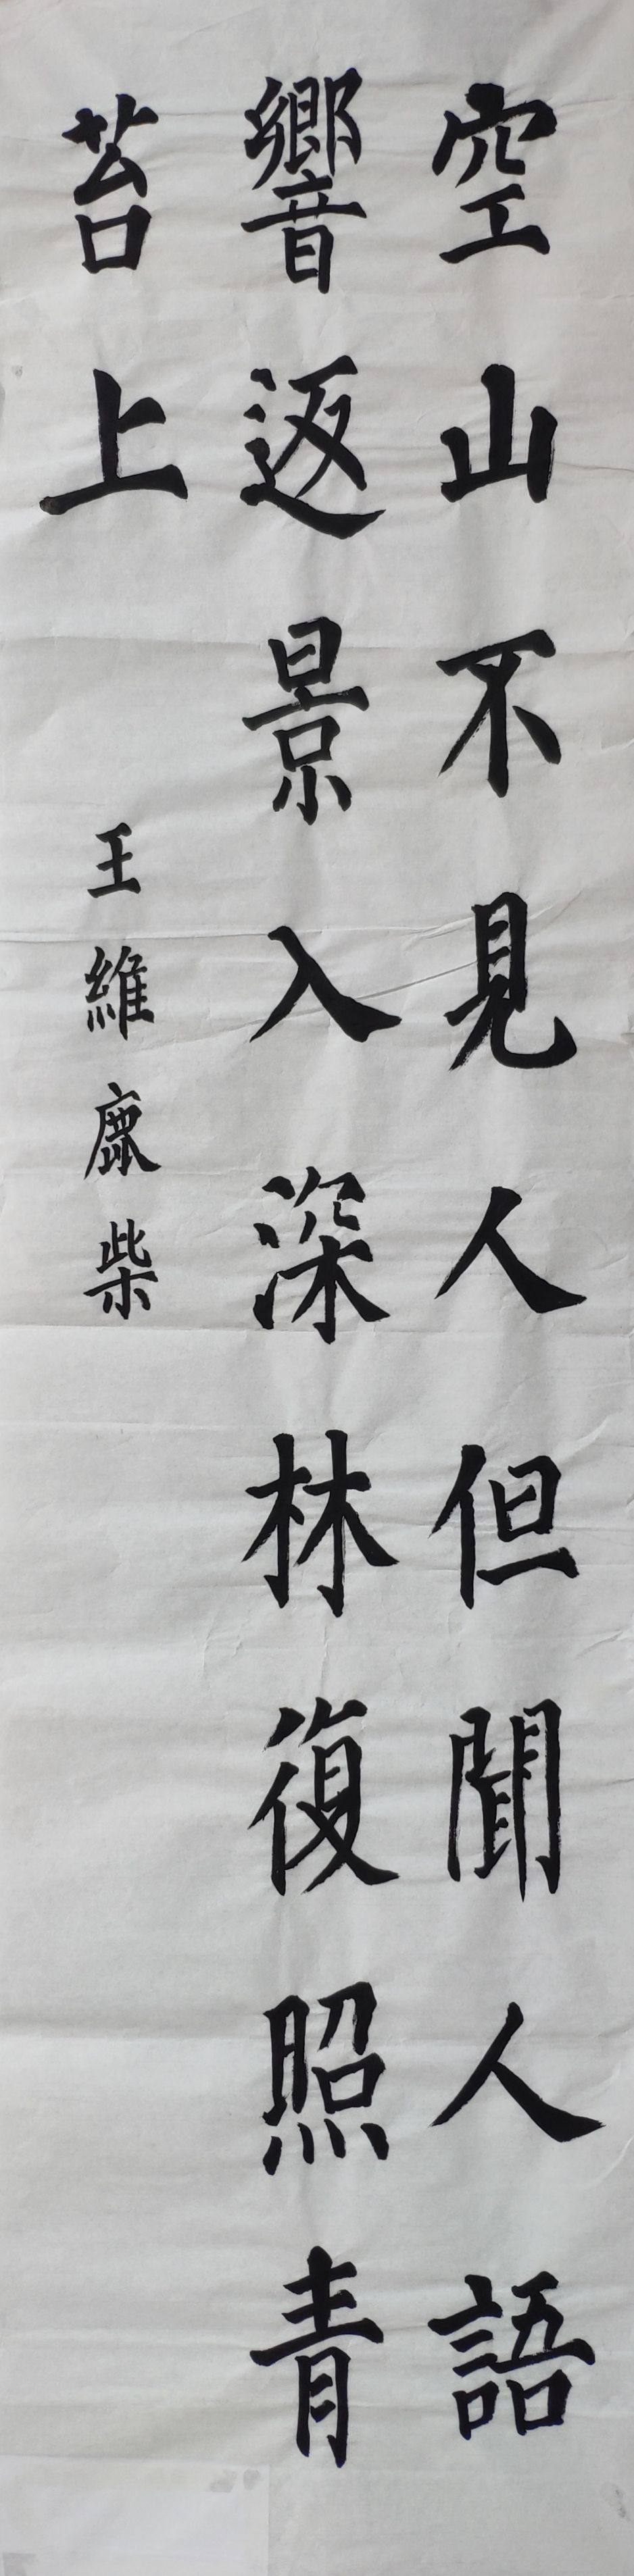 空山不見人但聞人語
響返景入深林復照青
苔上
王維鹿柴